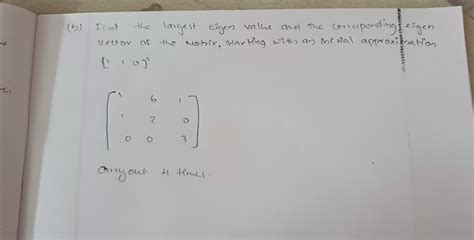 (b) Find the largest eigen value and the corresponding eigen
vector of the matrix, starting with an initial approximation
[1 1 0]'
1 6 1
1 2 0
0 0 3
Carryout 4 times.